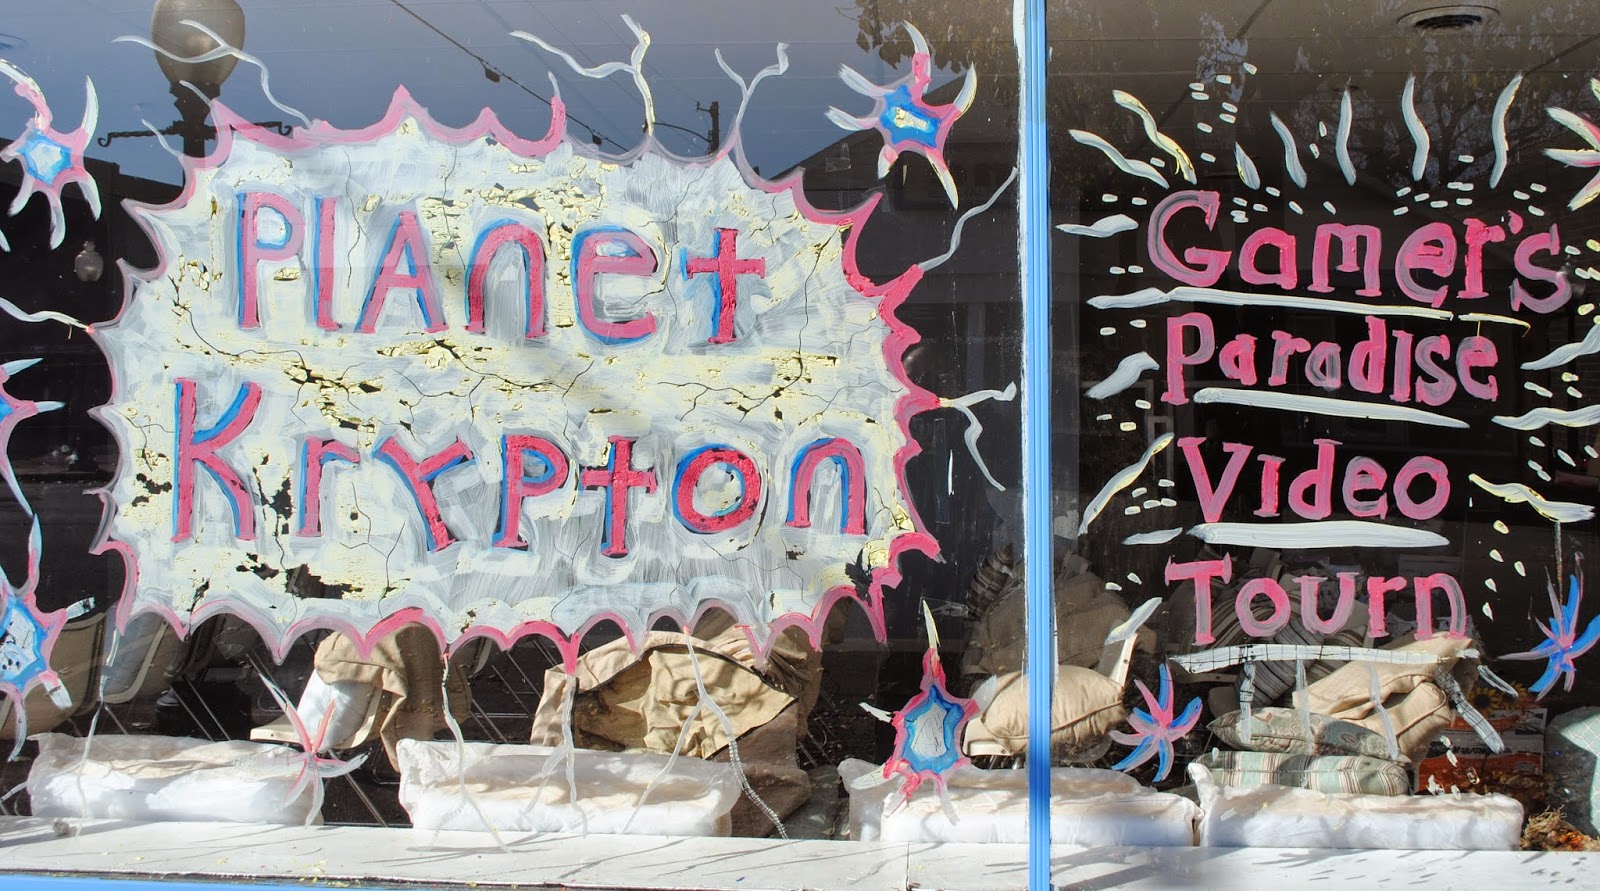 Planet
Krypton
Gamer's
Paradise
Video
Tourn